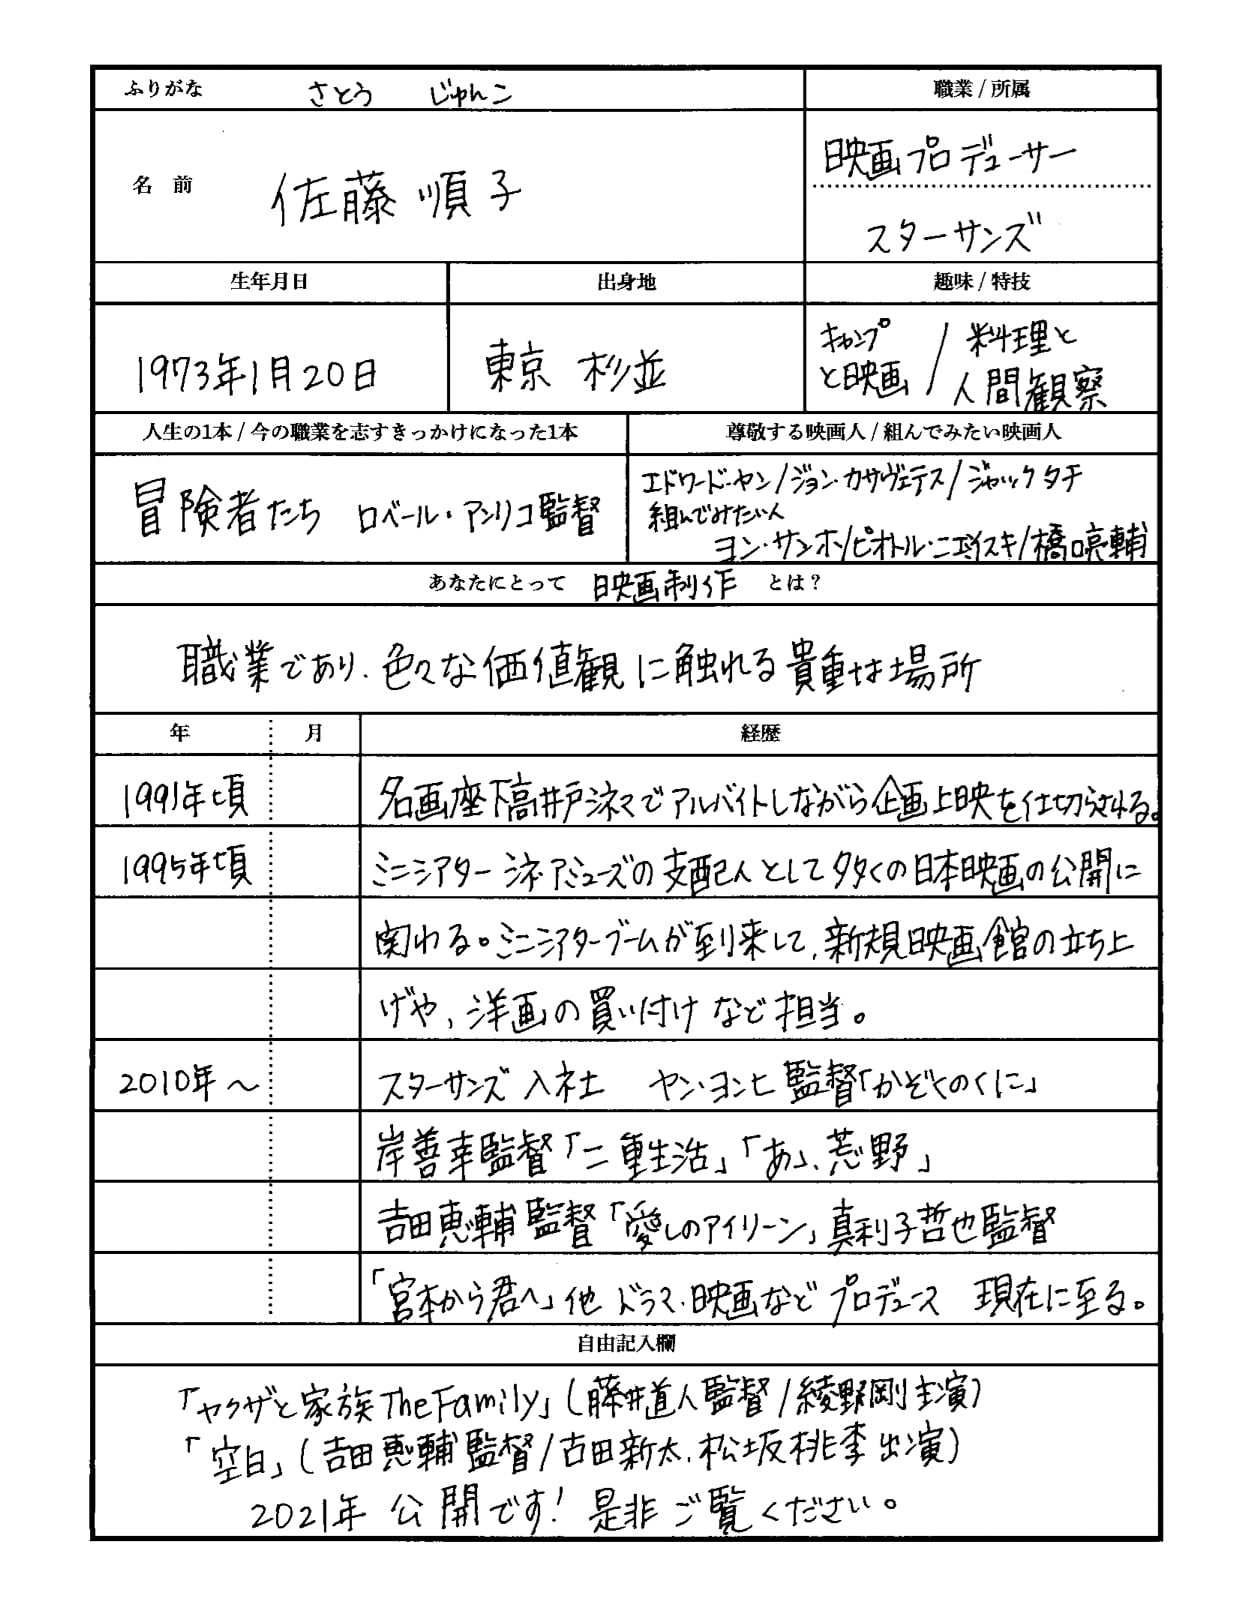 ふりがな さとう じゅんこ
職業 / 所属
名 前 佐藤 順子
映画プロデューサー
スターサンズ
生年月日
出身地
趣味 / 特技
1973年1月20日
東京 杉並
キャンプと映画 / 料理と人間観察
人生の1本 / 今の職業を志すきっかけになった1本
尊敬する映画人 / 組んでみたい映画人
冒険者たち ロベール・アンリコ監督
エドワード・ヤン/ジョン・カサヴェテス/ジャックタチ
組んでみたい人
ヨン・サンホ/ピオトル・ニエミイスキ/橋口亮輔
あなたにとって 映画制作 とは?
職業であり、色々な価値観に触れる貴重な場所
年 月 経歴
1991年頃 名画座下高井戸シネマでアルバイトしながら企画上映を仕切らされる。
1995年頃 ミニシアター シネ・アミューズの支配人として多くの日本映画の公開に
関わる。ミニシアターブームが到来して、新規映画館の立ち上
げや、洋画の買い付けなど担当。
2010年〜 スターサンズ入社 ヤン・ヨンヒ監督「かぞくのくに」
岸善幸監督「二重生活」「あゝ、荒野」
吉田恵輔監督「愛しのアイリーン」真利子哲也監督
「宮本から君へ」他 ドラマ、映画などプロデュース 現在に至る。
自由記入欄
「ヤクザと家族 The Family」(藤井道人監督/綾野剛主演)
「空白」(吉田恵輔監督/古田新太、松坂桃李出演)
2021年 公開です! 是非ご覧ください。